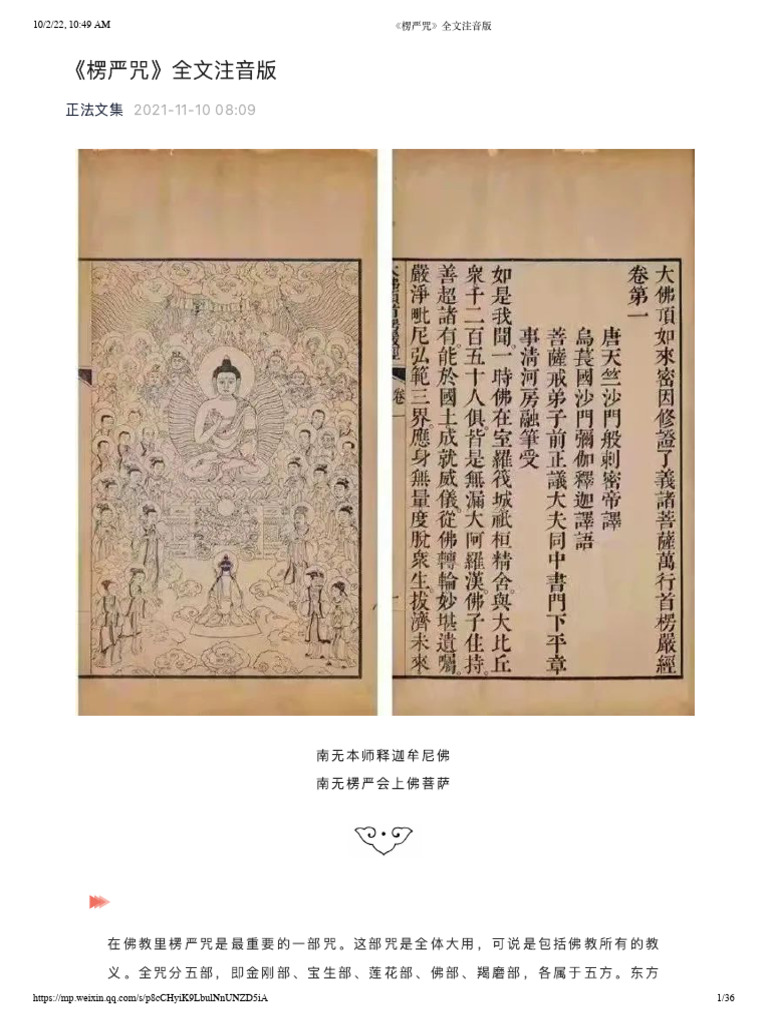 10/2/22, 10:49 AM
《楞严咒》全文注音版
《楞严咒》全文注音版
正法文集 2021-11-10 08:09
大佛頂如來密因修證了義諸菩薩萬行首楞嚴經
卷第一
唐天竺沙門般剌密帝譯
烏萇國沙門彌伽釋迦譯語
菩薩戒弟子前正議大夫同中書門下平章
事清河房融筆受
如是我聞。一時佛在室羅筏城祇桓精舍。與大比丘
衆千二百五十人俱。皆是無漏大阿羅漢。佛子住持。
善超諸有。能於國土成就威儀。從佛轉輪妙堪遺囑。
嚴淨毗尼弘範三界。應身無量度脫衆生拔濟未來
南无本师释迦牟尼佛
南无楞严会上佛菩萨
在佛教里楞严咒是最重要的一部咒。这部咒是全体大用，可说是包括佛教所有的教
义。全咒分五部，即金刚部、宝生部、莲花部、佛部、羯磨部，各属于五方。东方
https://mp.weixin.qq.com/s/p8cCHyiK9LbulNnUNZD5iA
1/36